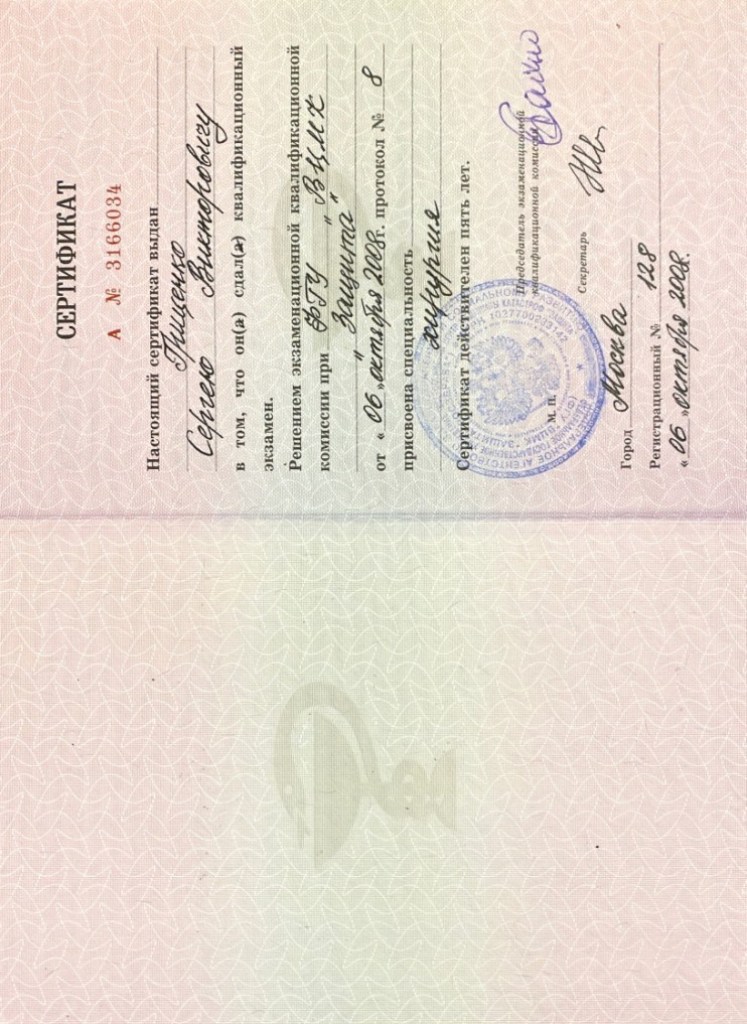 СЕРТИФИКАТ
А № 3166034
Настоящий сертификат выдан
Грищенко
Сергею Викторовичу
в том, что он(а) сдал(а) квалификационный
экзамен.
Решением экзаменационной квалификационной
комиссии при ФГУ „ВЦМК
„Защита"
от «06» октября 2008г. протокол № 8
присвоена специальность
хирургия
Сертификат действителен пять лет.
Председатель экзаменационной
квалификационной комиссии
М. П.
Секретарь
Город Москва
Регистрационный № 128
«06» октября 2008.